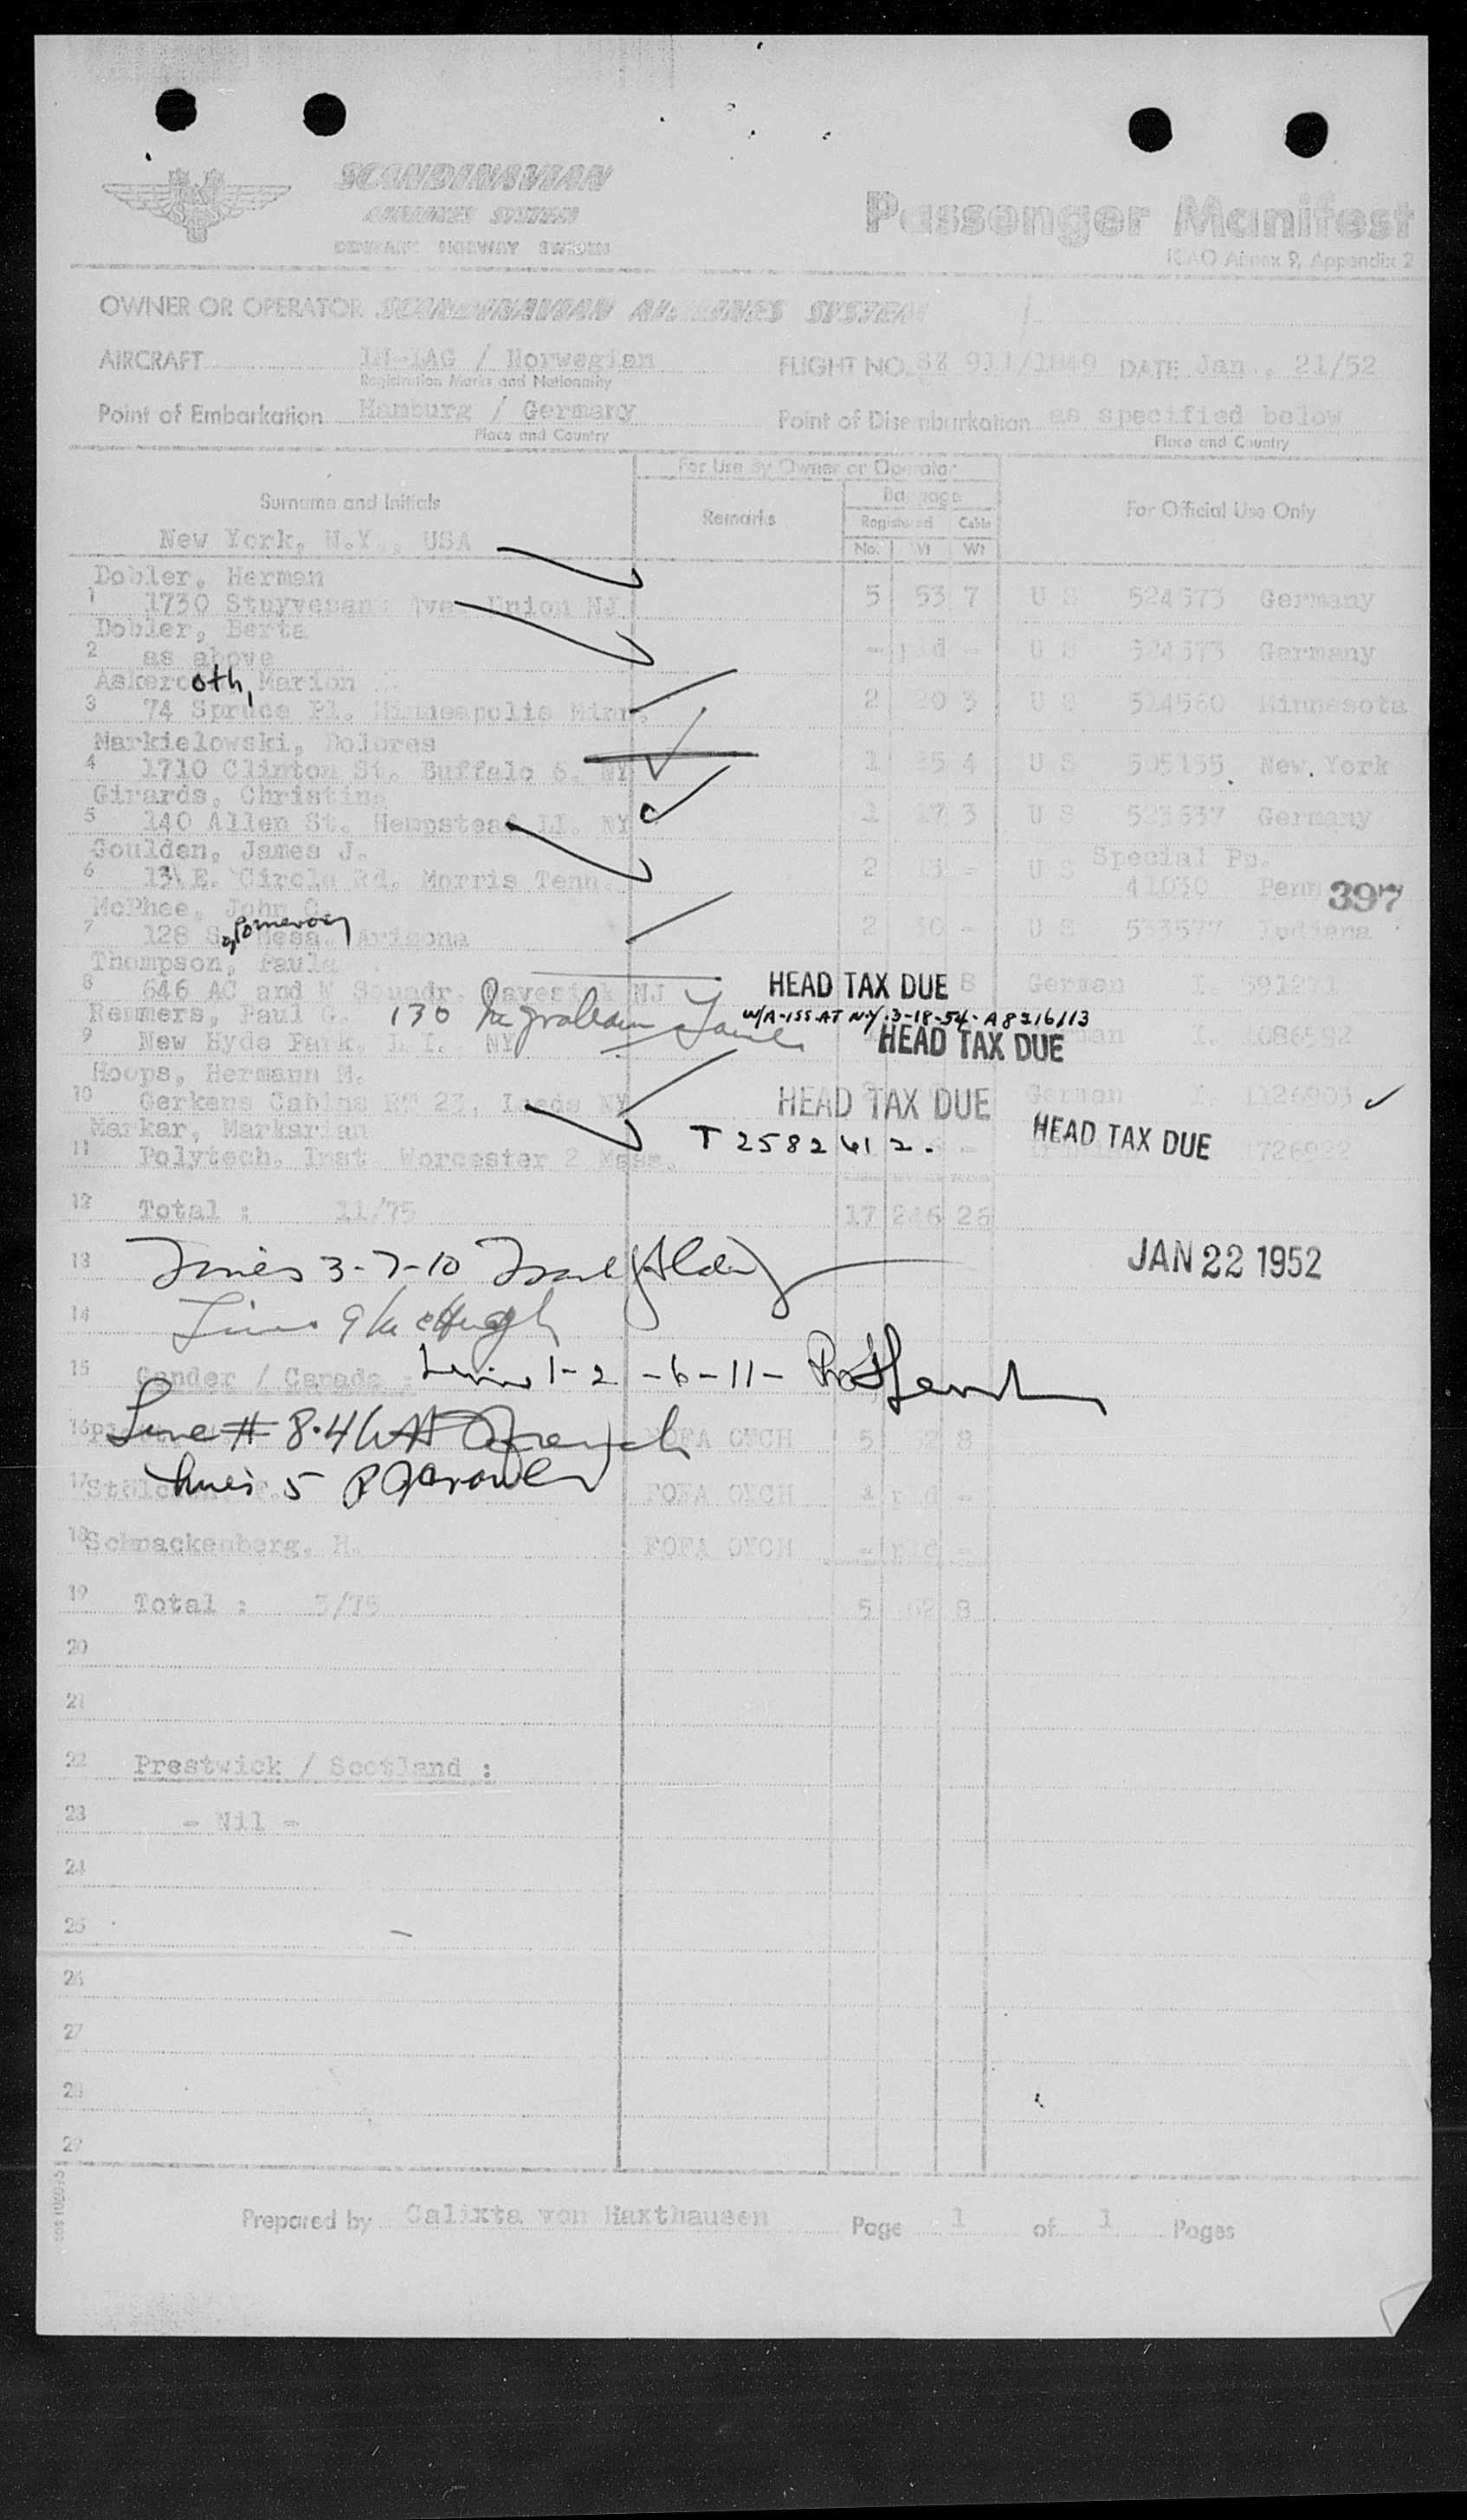 SCANDINAVIAN
AIRLINES SYSTEM
DENMARK NORWAY SWEDEN
Passenger Manifest
ICAO Annex 9, Appendix 2
OWNER OR OPERATOR SCANDINAVIAN AIRLINES SYSTEM
AIRCRAFT LN-IAG / Norwegian FLIGHT NO. SK 911/1849 DATE Jan., 21/52
Registration Marks and Nationality
Point of Embarkation Hamburg / Germany Point of Disembarkation as specified below
Place and Country Place and Country
For Use By Owner or Operator
Surname and Initials Remarks Baggage For Official Use Only
Registered Cabin
No. Wt Wt
New York, N.Y., USA
Dobler, Herman
1 1730 Stuyvesant Ave. Union NJ 5 53 7 U S 524573 Germany
Dobler, Berta
2 as above - - U S 524573 Germany
oth, Marion
3 74 Spruce Pl. Minneapolis Minn. 2 20 3 U S 514560 Minnesota
Markielowski, Dolores
4 1710 Clinton St. Buffalo 6. NY 1 4 U S 505155 New York
Girards, Christine
5 140 Allen St. Hempstead LI. NY 1 3 U S 523637 Germany
Goulden, James J.
Special Pp.
6 E. Circle Rd. Morris Tenn. 2 - U S 41030 Penn 397
McPhee, John
7 128 S. Pomeroy Mesa. Arizona 2 30 - U S 553577 Indiana
Thompson, Paula
8 646 AC and W Squadr. NJ HEAD TAX DUE 8 German I.
Remmers, Paul G. 130 Lane W/A-155-AT N.Y. 3-18-54-A8216113
9 New Hyde Park. L.I. NY HEAD TAX DUE I. 1086592
Hoops, Hermann H.
10 Gerkens Cabins 23, Leeds NY HEAD TAX DUE German I. 1126903
Markar, Markarian T 2582412. HEAD TAX DUE
11 Polytech. Inst. Worcester 2 Mass. - 1726922
12 Total : 11/75 17 246 26
13 Lines 3-7-10 JAN 22 1952
14 Line 9
15 Gander / Canada : Lines 1-2-6-11-
16 Line # 8.4 FOFA OYCH 5 8
17 Lines 5 FOFA OYCH -
18 Schnackenberg, H. FOFA OYCH - -
19 Total : 3/75 5 62 8
20
21
22 Prestwick / Scotland :
23 - Nil -
24
25
26
27
28
29
Prepared by Calixta von Haxthausen Page 1 of 1 Pages